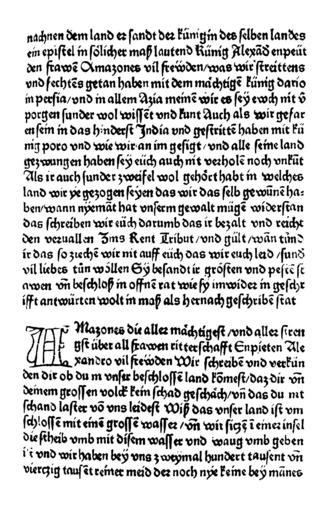 nachnen dem land er sandt der künigin des selben landes
ein epistel in sölicher maß lautend Künig Alexãd enpeüt
den frawẽ Amazones vil frewden/was wir streittens
vnd fechtẽs getan haben mit dem mächtigẽ künig dario
in persia/vnd in allem Azia meinẽ wir es sey eüch nit v̈
porgen sunder wol wissẽt vnd kunt Auch als wir gefar
en sein in das hinderst India vnd gestritẽ haben mit kü
nig poro vnd wie wir an im gesigt/vnd alle seine land
gezwungen haben sey eüch auch nit verholẽ noch vnküt
Als ir auch sunder zweifel wol gehört habt in welches
land wir ye gezogen seyen das wir das selb gewũnẽ ha-
ben/wann nyemãt hat vnserm gewalt mügẽ widerstan
das schreiben wir eüch darumb das ir bezalt vnd reicht
den Zins Rent Tribut/vnd gült/wãn
ir das so ziechẽ wir nit auff eüch das wir eüch leid/sund
vil liebes tũn wöllen Sy besandt ir grösten vnd
awen vñ beschloß in offnẽ rat wie sy im wider in geschr
ifft antwürten wolt in maß als hernach geschribẽ stat
AMazones die aller mächtigest/vnd aller streн
gst über all frawen ritterschafft Enpieten Ale
xandro vil frewden Wir schreiben vnd verkün
den dir ob du in vnser beschlossẽ land kömest/daz dir võ
deinem grossen volck kein schad geschäch/vñ das du nit
schand laster võ vns leidest Wiß das vnser land ist vm
schlossẽ mit einẽ grossẽ wasser/vñ wir siczẽ in einer insel
die vmb mit disem wasser vnd waug vmb geben
ist vnd wir haben bey vns zweymal hundert tausent vñ
vierczig tausẽt reiner meid der noch nye keine bey mãnes